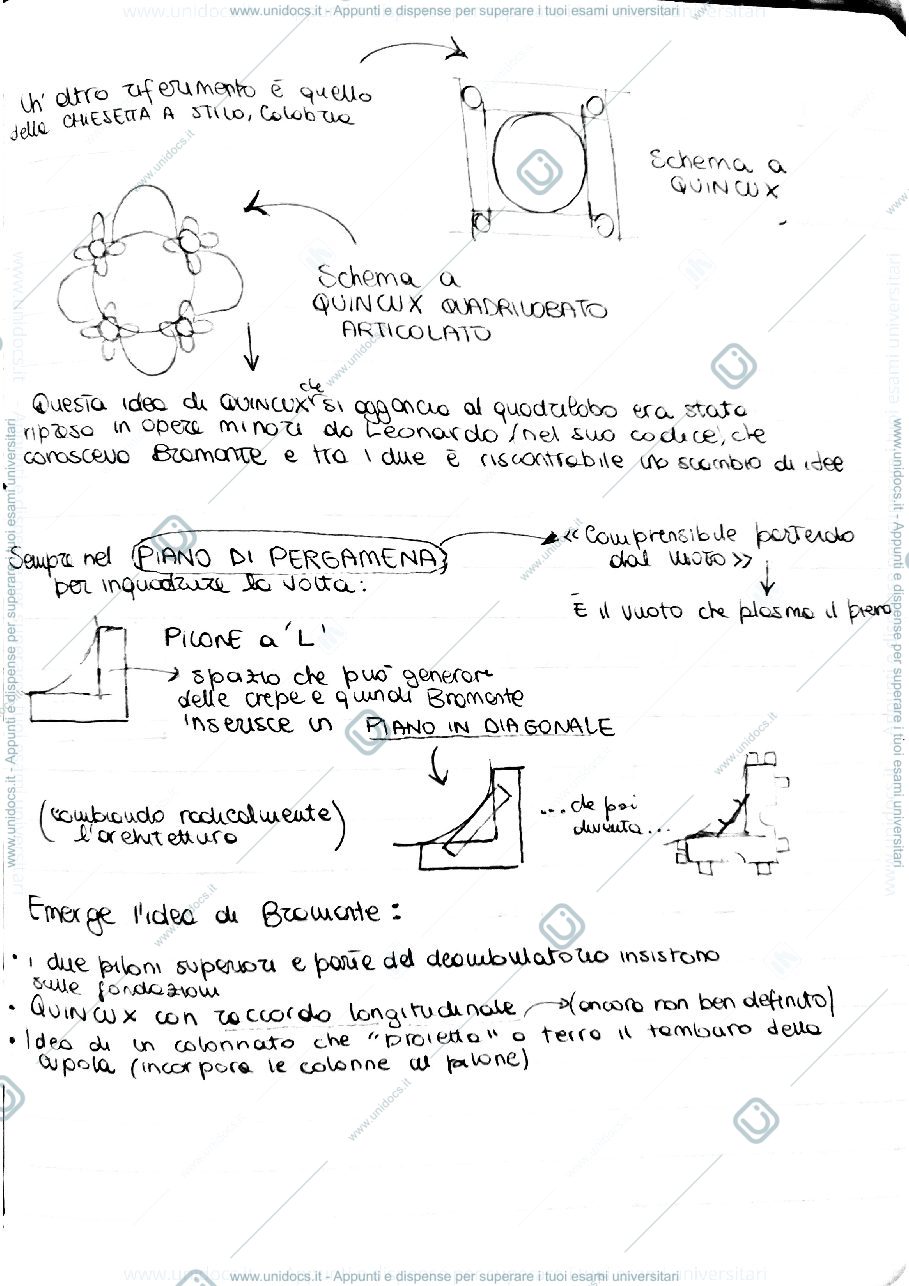 www.unidocs.it - Appunti e dispense per superare i tuoi esami universitari
Un' altro riferimento è quello
della CHIESETTA A STILO, Calabria
Schema a
QUINCUX
Schema a
QUINCUX QUADRILOBATO
ARTICOLATO
Questa idea di QUINCUX che si aggancia al quadrilobo era stata
ripresa in opere minori da Leonardo (nel suo codice), che
conosceva Bramante e tra i due è riscontrabile uno scambio di idee
Sempre nel PIANO DI PERGAMENA
per inquadrare la volta:
«Comprensibile partendo
dal vuoto»
È il vuoto che plasma il pieno
PILONE a 'L'
spazio che può generare
delle crepe e quindi Bramante
inserisce un PIANO IN DIAGONALE
(cambiando radicalmente
l'architettura)
...che poi
diventa...
Emerge l'idea di Bramante:
• i due piloni superiori e parte del deambulatorio insistono
sulle fondazioni
• QUINCUX con raccordo longitudinale (ancora non ben definito)
• Idea di un colonnato che "proietta" a terra il tamburo della
cupola (incorpora le colonne al pilone)
www.unidocs.it - Appunti e dispense per superare i tuoi esami universitari